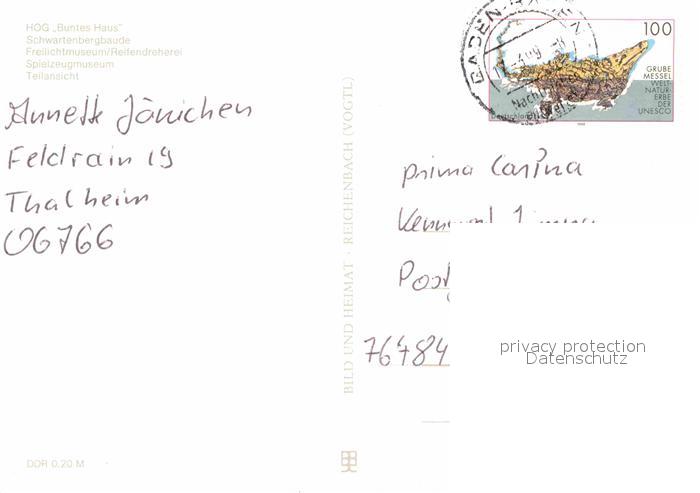 HOG „Buntes Haus"
Schwartenbergbaude
Freilichtmuseum/Reifendreherei
Spielzeugmuseum
Teilansicht
Annett Jänichen
Feldrain 19
Thalheim
06766
DDR 0,20 M
BILD UND HEIMAT · REICHENBACH (VOGTL)
100
GRUBE
MESSEL
WELT-
NATUR-
ERBE
DER
UNESCO
Deutschland
BADEN-BADEN
prima Carina
Kennwort
Post
76484
privacy protection
Datenschutz